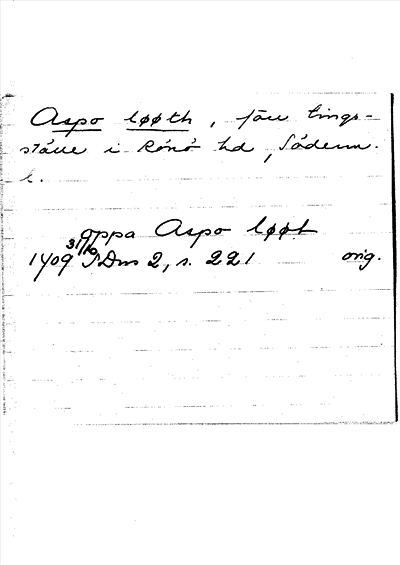 Aspo løøth, fäu tings-
ställe i Rönö hd, Söderm.
l.
oppa Aspo løøt
1409 31/10 SDns 2, s. 221 orig.